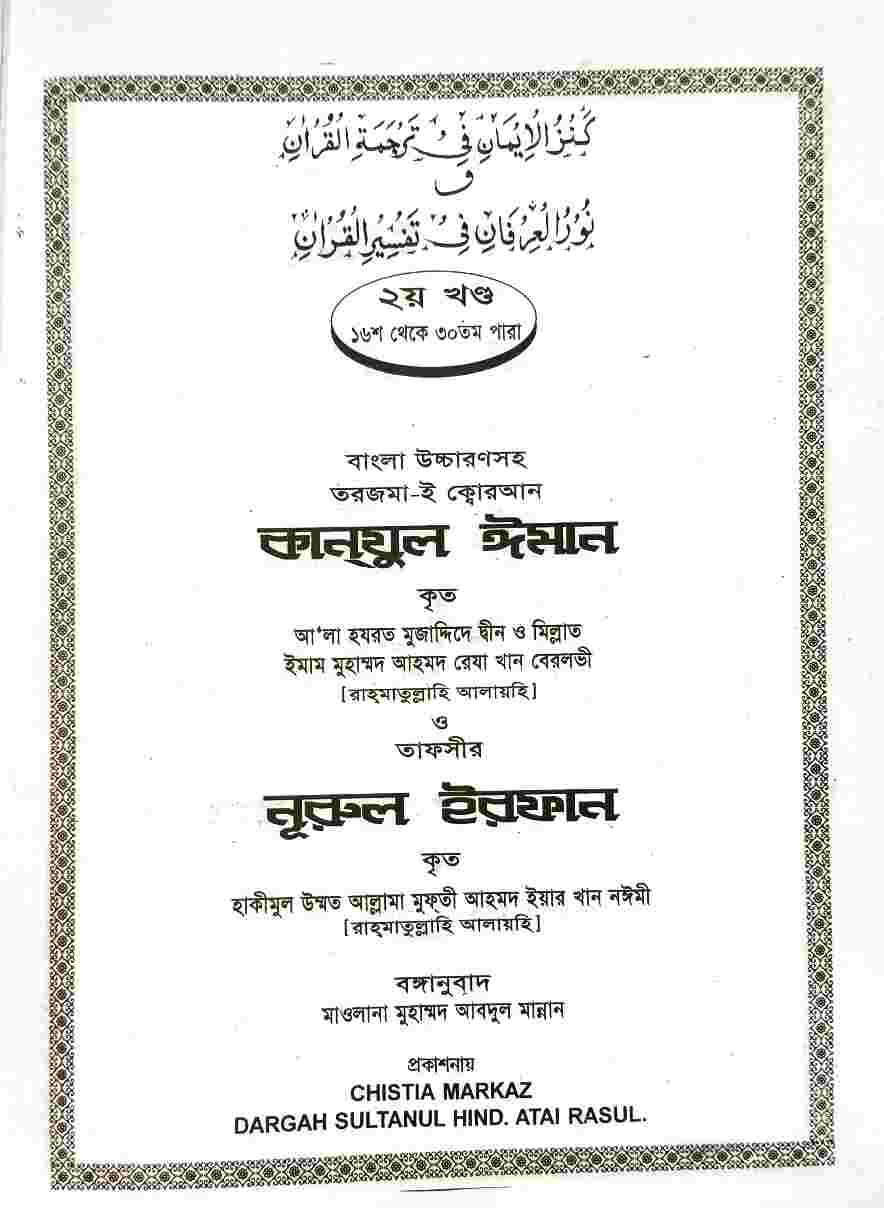 كَنْزُ الْإِيْمَانِ فِيْ تَرْجَمَةِ الْقُرْاٰنِ
و
نُوْرُ الْعِرْفَانِ فِيْ تَفْسِيْرِ الْقُرْاٰنِ
২য় খণ্ড
১৬শ থেকে ৩০তম পারা
বাংলা উচ্চারণসহ
তরজমা-ই ক্বোরআন
কান্‌যুল ঈমান
কৃত
আ'লা হযরত মুজাদ্দিদে দ্বীন ও মিল্লাত
ইমাম মুহাম্মদ আহমদ রেযা খান বেরলভী
[রাহ্‌মাতুল্লাহি আলায়হি]
ও
তাফসীর
নূরুল ইরফান
কৃত
হাকীমুল উম্মত আল্লামা মুফ্‌তী আহমদ ইয়ার খান নঈমী
[রাহ্‌মাতুল্লাহি আলায়হি]
বঙ্গানুবাদ
মাওলানা মুহাম্মদ আবদুল মান্নান
প্রকাশনায়
CHISTIA MARKAZ
DARGAH SULTANUL HIND. ATAI RASUL.